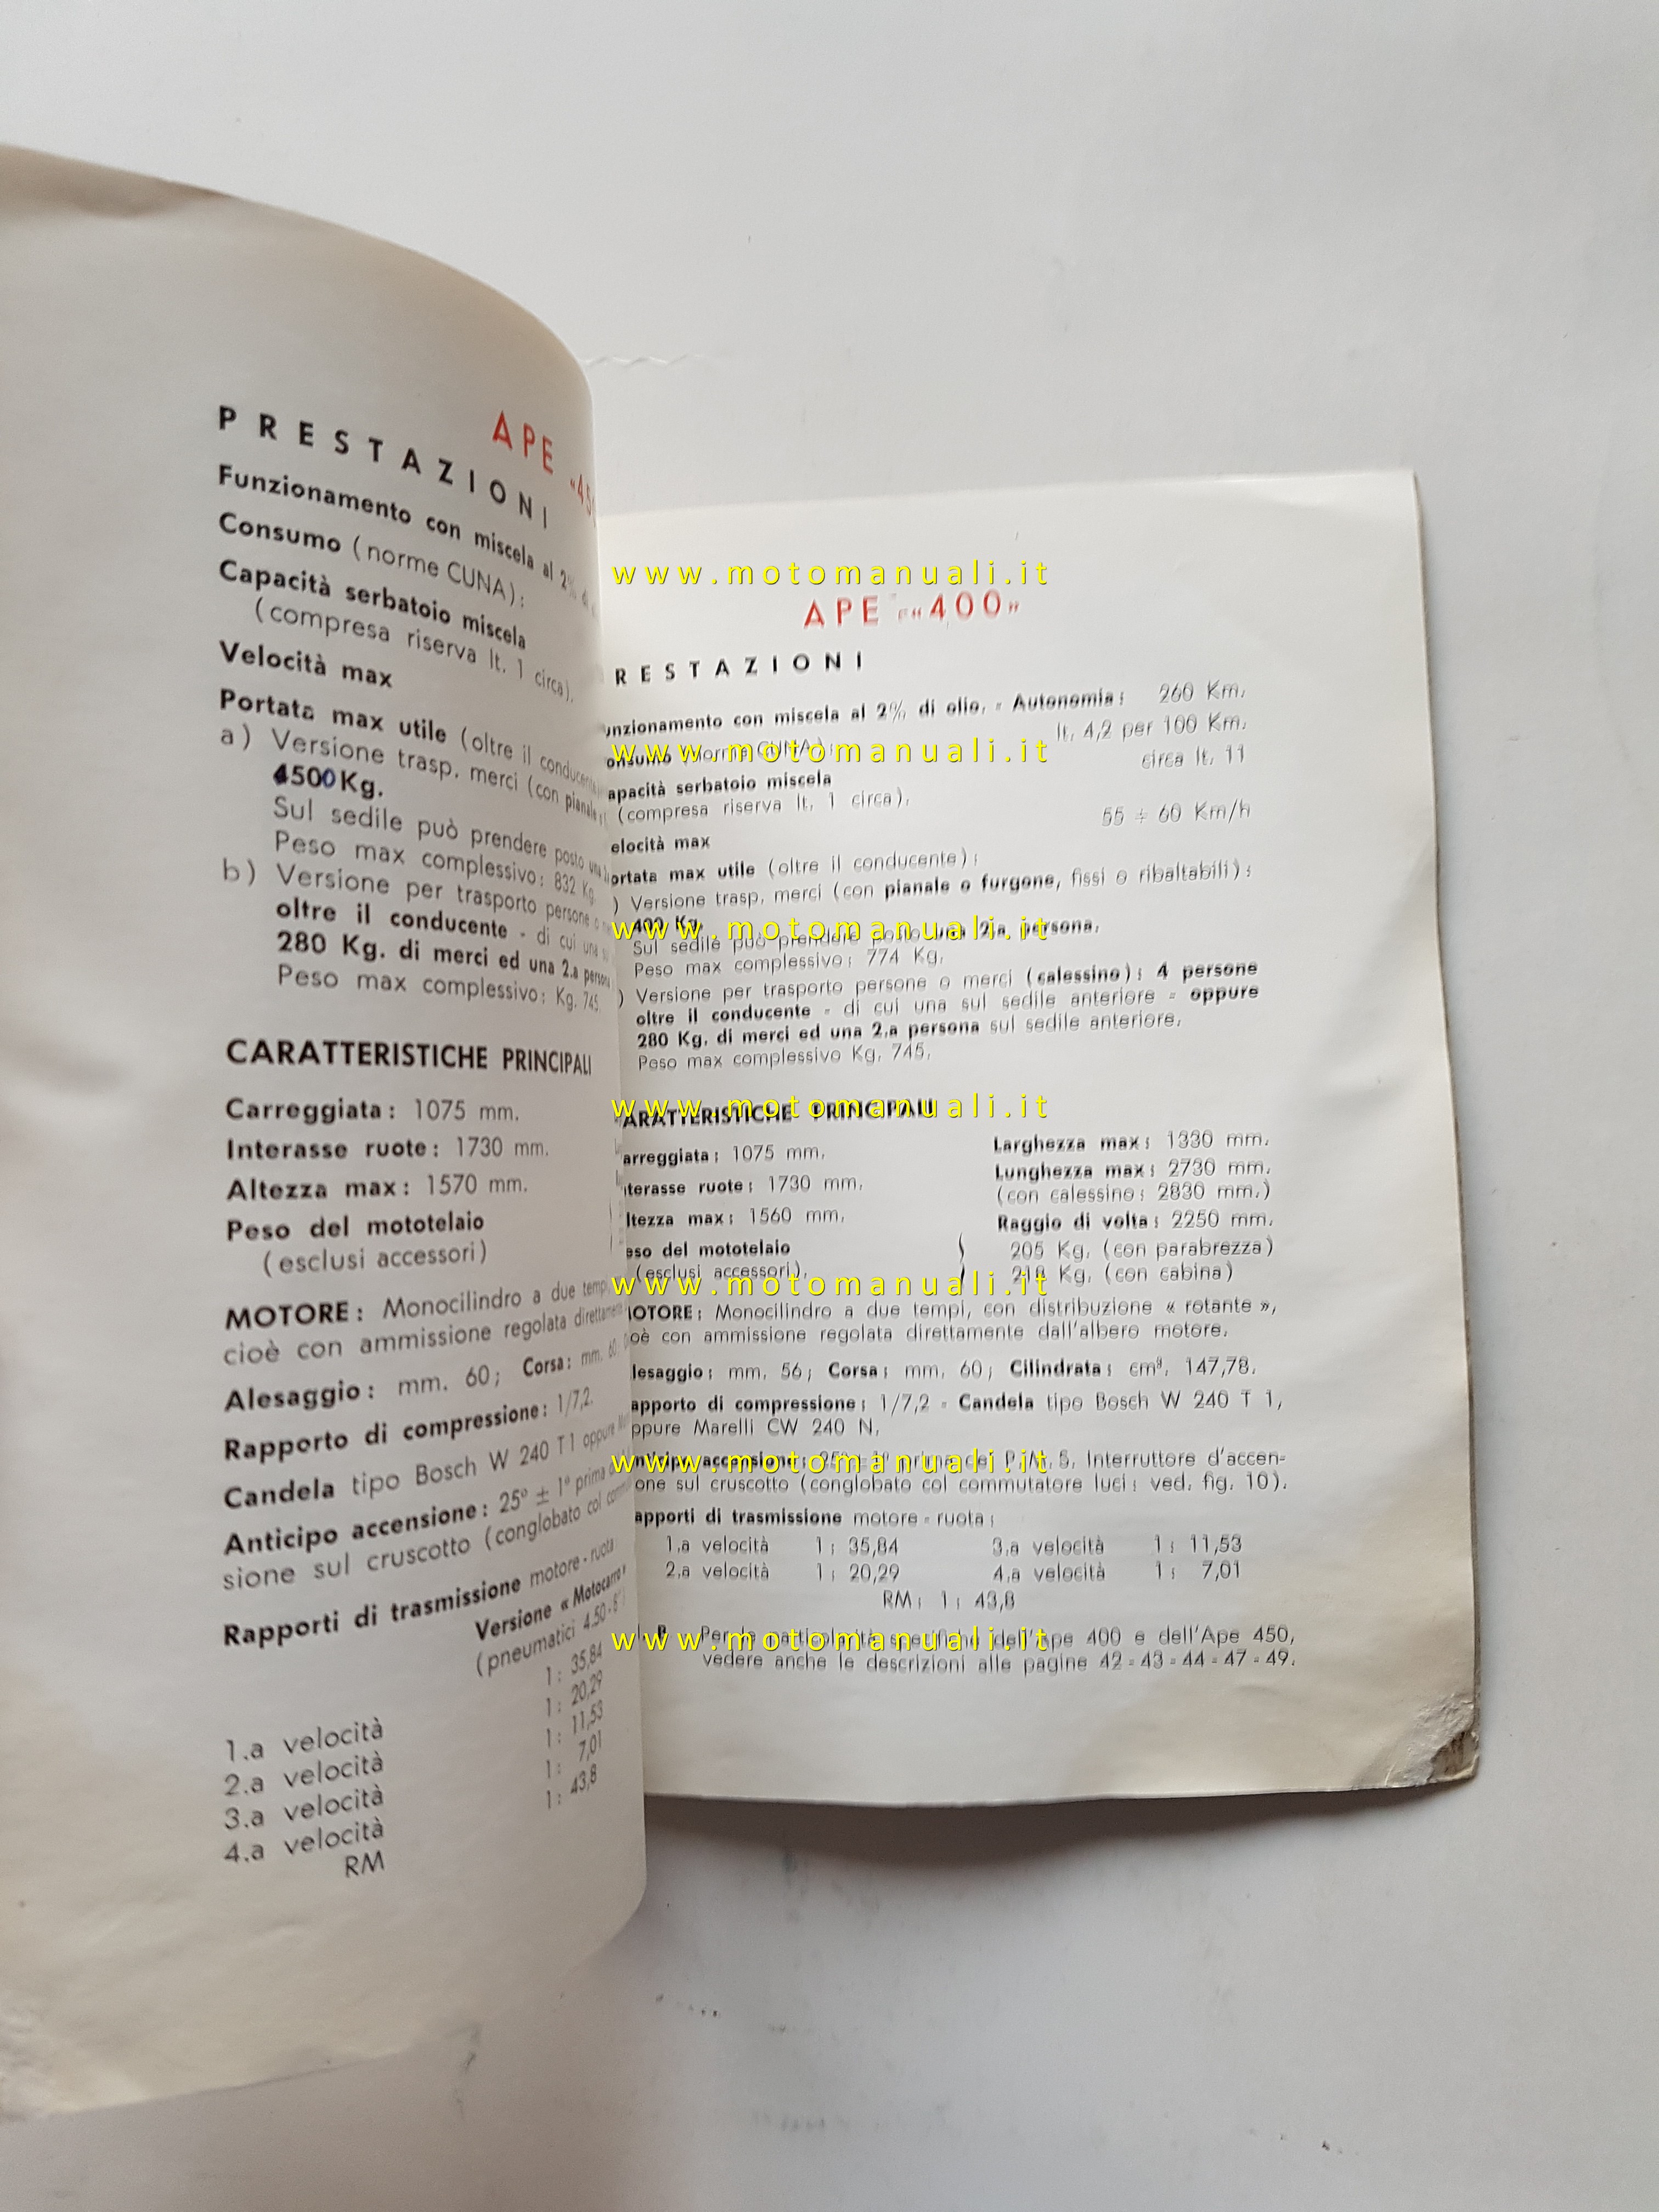 APE
PRESTAZIONI
Funzionamento con miscela al 2%
Consumo (norme CUNA):
Capacità serbatoio miscela
(compresa riserva lt. 1 circa).
Velocità max
Portata max utile (oltre il conducente
a) Versione trasp. merci (con pianale
4500 Kg.
Sul sedile può prendere posto una
Peso max complessivo: 832 Kg.
b) Versione per trasporto persone o
oltre il conducente - di cui una
280 Kg. di merci ed una 2.a persona
Peso max complessivo: Kg. 745.
CARATTERISTICHE PRINCIPALI
Carreggiata: 1075 mm.
Interasse ruote: 1730 mm.
Altezza max: 1570 mm.
Peso del mototelaio
(esclusi accessori)
MOTORE: Monocilindro a due tempi
cioè con ammissione regolata direttamente
Alesaggio: mm. 60; Corsa: mm. 60;
Rapporto di compressione: 1/7,2.
Candela tipo Bosch W 240 T 1 oppure
Anticipo accensione: 25° ± 1° prima
sione sul cruscotto (conglobato col
Rapporti di trasmissione motore - ruota
Versione « Motocarro »
(pneumatici 4.50-8"
1.a velocità 1: 35,84
2.a velocità 1: 20,29
3.a velocità 1: 11,53
4.a velocità 1: 7,01
RM 1: 43,8
www.motomanuali.it
APE «400»
RESTAZIONI
unzionamento con miscela al 2% di olio. - Autonomia: 260 Km.
onsumo (norme CUNA): lt. 4,2 per 100 Km.
www.motomanuali.it
apacità serbatoio miscela circa lt. 11
(compresa riserva lt. 1 circa).
elocità max 55 ÷ 60 Km/h
ortata max utile (oltre il conducente):
) Versione trasp. merci (con pianale o furgone, fissi o ribaltabili):
400 Kg.
www.motomanuali.it
Sul sedile può prendere posto una 2.a persona.
Peso max complessivo: 774 Kg.
) Versione per trasporto persone o merci (calessino): 4 persone
oltre il conducente - di cui una sul sedile anteriore - oppure
280 Kg. di merci ed una 2.a persona sul sedile anteriore.
Peso max complessivo Kg. 745.
www.motomanuali.it
ARATTERISTICHE PRINCIPALI
arreggiata: 1075 mm. Larghezza max: 1330 mm.
terasse ruote: 1730 mm. Lunghezza max: 2730 mm.
(con calessino: 2830 mm.)
ltezza max: 1560 mm. Raggio di volta: 2250 mm.
eso del mototelaio 205 Kg. (con parabrezza)
(esclusi accessori). 218 Kg. (con cabina)
www.motomanuali.it
OTORE: Monocilindro a due tempi, con distribuzione « rotante »,
oè con ammissione regolata direttamente dall'albero motore.
lesaggio: mm. 56; Corsa: mm. 60; Cilindrata: cm³. 147,78.
apporto di compressione: 1/7,2 - Candela tipo Bosch W 240 T 1,
ppure Marelli CW 240 N.
nticipo accensione: 25° ± 1° prima del P.M.S. Interruttore d'accen-
www.motomanuali.it
one sul cruscotto (conglobato col commutatore luci: ved. fig. 10).
apporti di trasmissione motore - ruota:
1.a velocità 1: 35,84 3.a velocità 1: 11,53
2.a velocità 1: 20,29 4.a velocità 1: 7,01
RM: 1: 43,8
B. Per le particolarità specifiche dell'Ape 400 e dell'Ape 450,
www.motomanuali.it
vedere anche le descrizioni alle pagine 42 - 43 - 44 - 47 - 49.